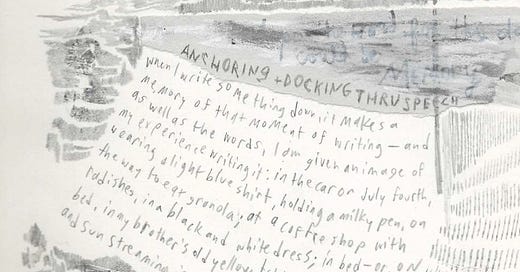 ANCHORING + DOCKING THRU SPEECH
when I write something down, it makes a
memory of that moment of writing — and
as well as the words, I am given an image of
my experience writing it: in the car on July fourth,
wearing a light blue shirt, holding a milky pen, on
the way to eat granola; at a coffee shop with
radishes, in a black and white dress; in bed — or, on
bed, in my brother's old yellow
and sun streaming